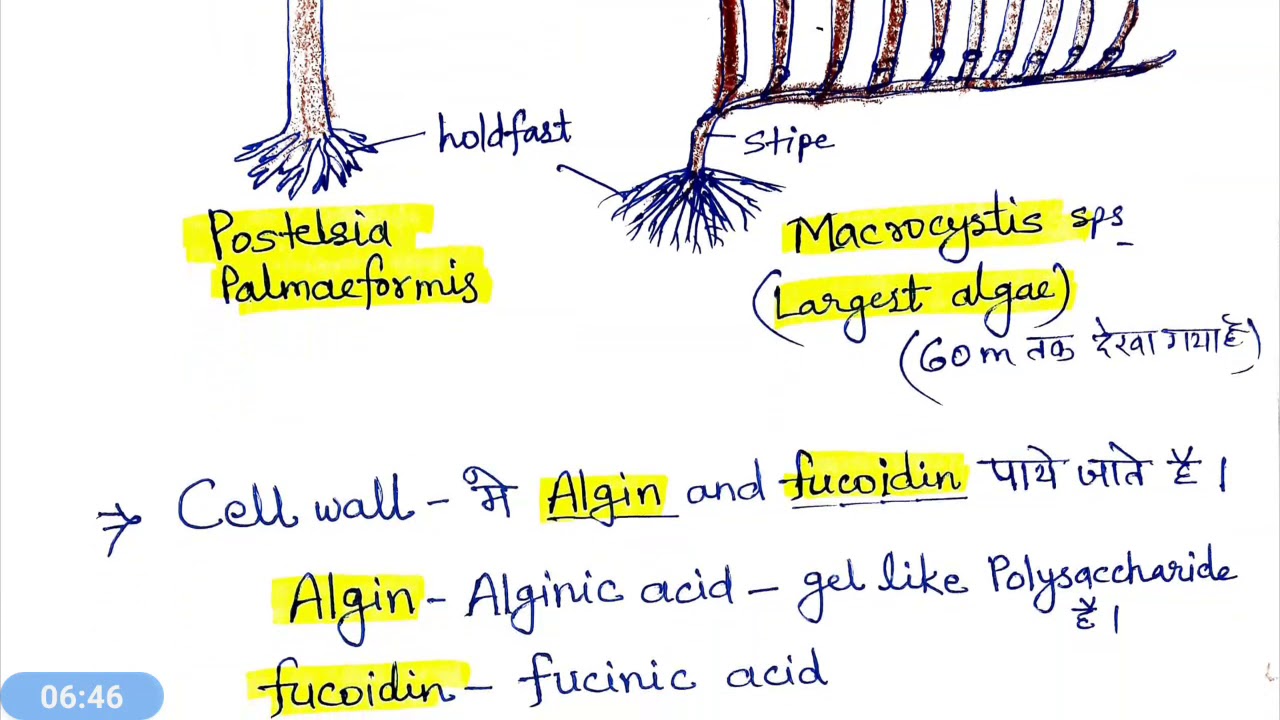 holdfast
stipe
Postelsia
Palmaeformis
Macrocystis sps
(Largest algae)
(60m तक देखा गया है)
→ Cell wall - मे Algin and fucoidin पाये जाते है।
Algin - Alginic acid - gel like Polysaccharide
है।
fucoidin - fucinic acid
06:46